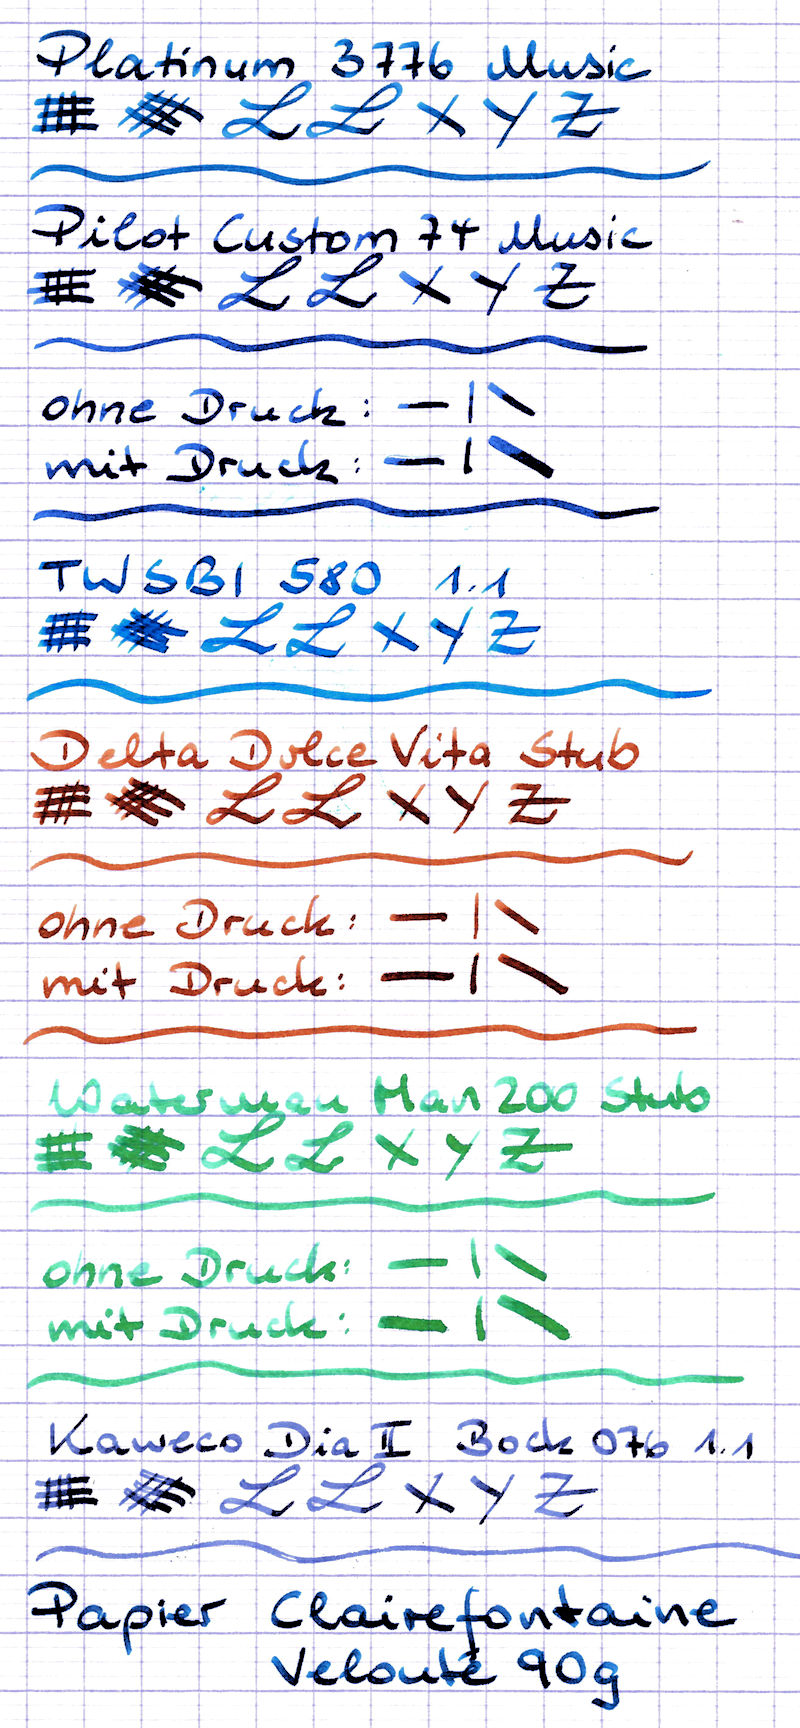 Platinum 3776 Music
L L X Y Z
Pilot Custom 74 Music
L L X Y Z
ohne Druck: — | \
mit Druck: — | \
TWSBI 580 1.1
L L X Y Z
Delta Dolce Vita Stub
L L X Y Z
ohne Druck: — | \
mit Druck: — | \
Waterman Man 200 Stub
L L X Y Z
ohne Druck: — | \
mit Druck: — | \
Kaweco Dia II Bock 076 1.1
L L X Y Z
Papier Clairefontaine
Velouté 90g